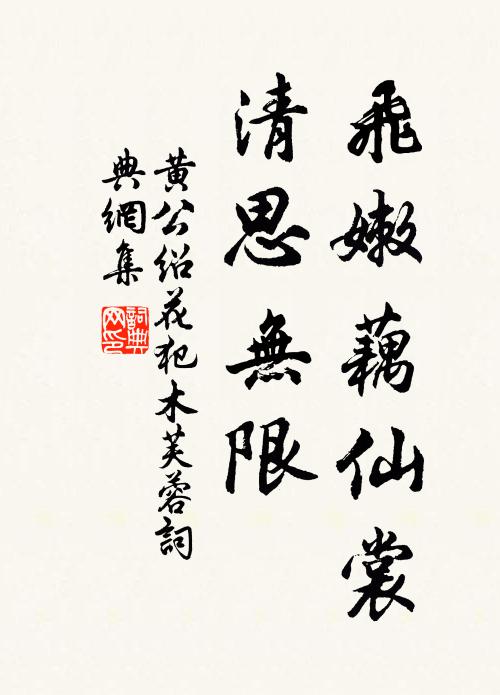 飛嫩藕仙裳
清思無限
黄公紹花犯木芙蓉詞
典網集
詞典
网印